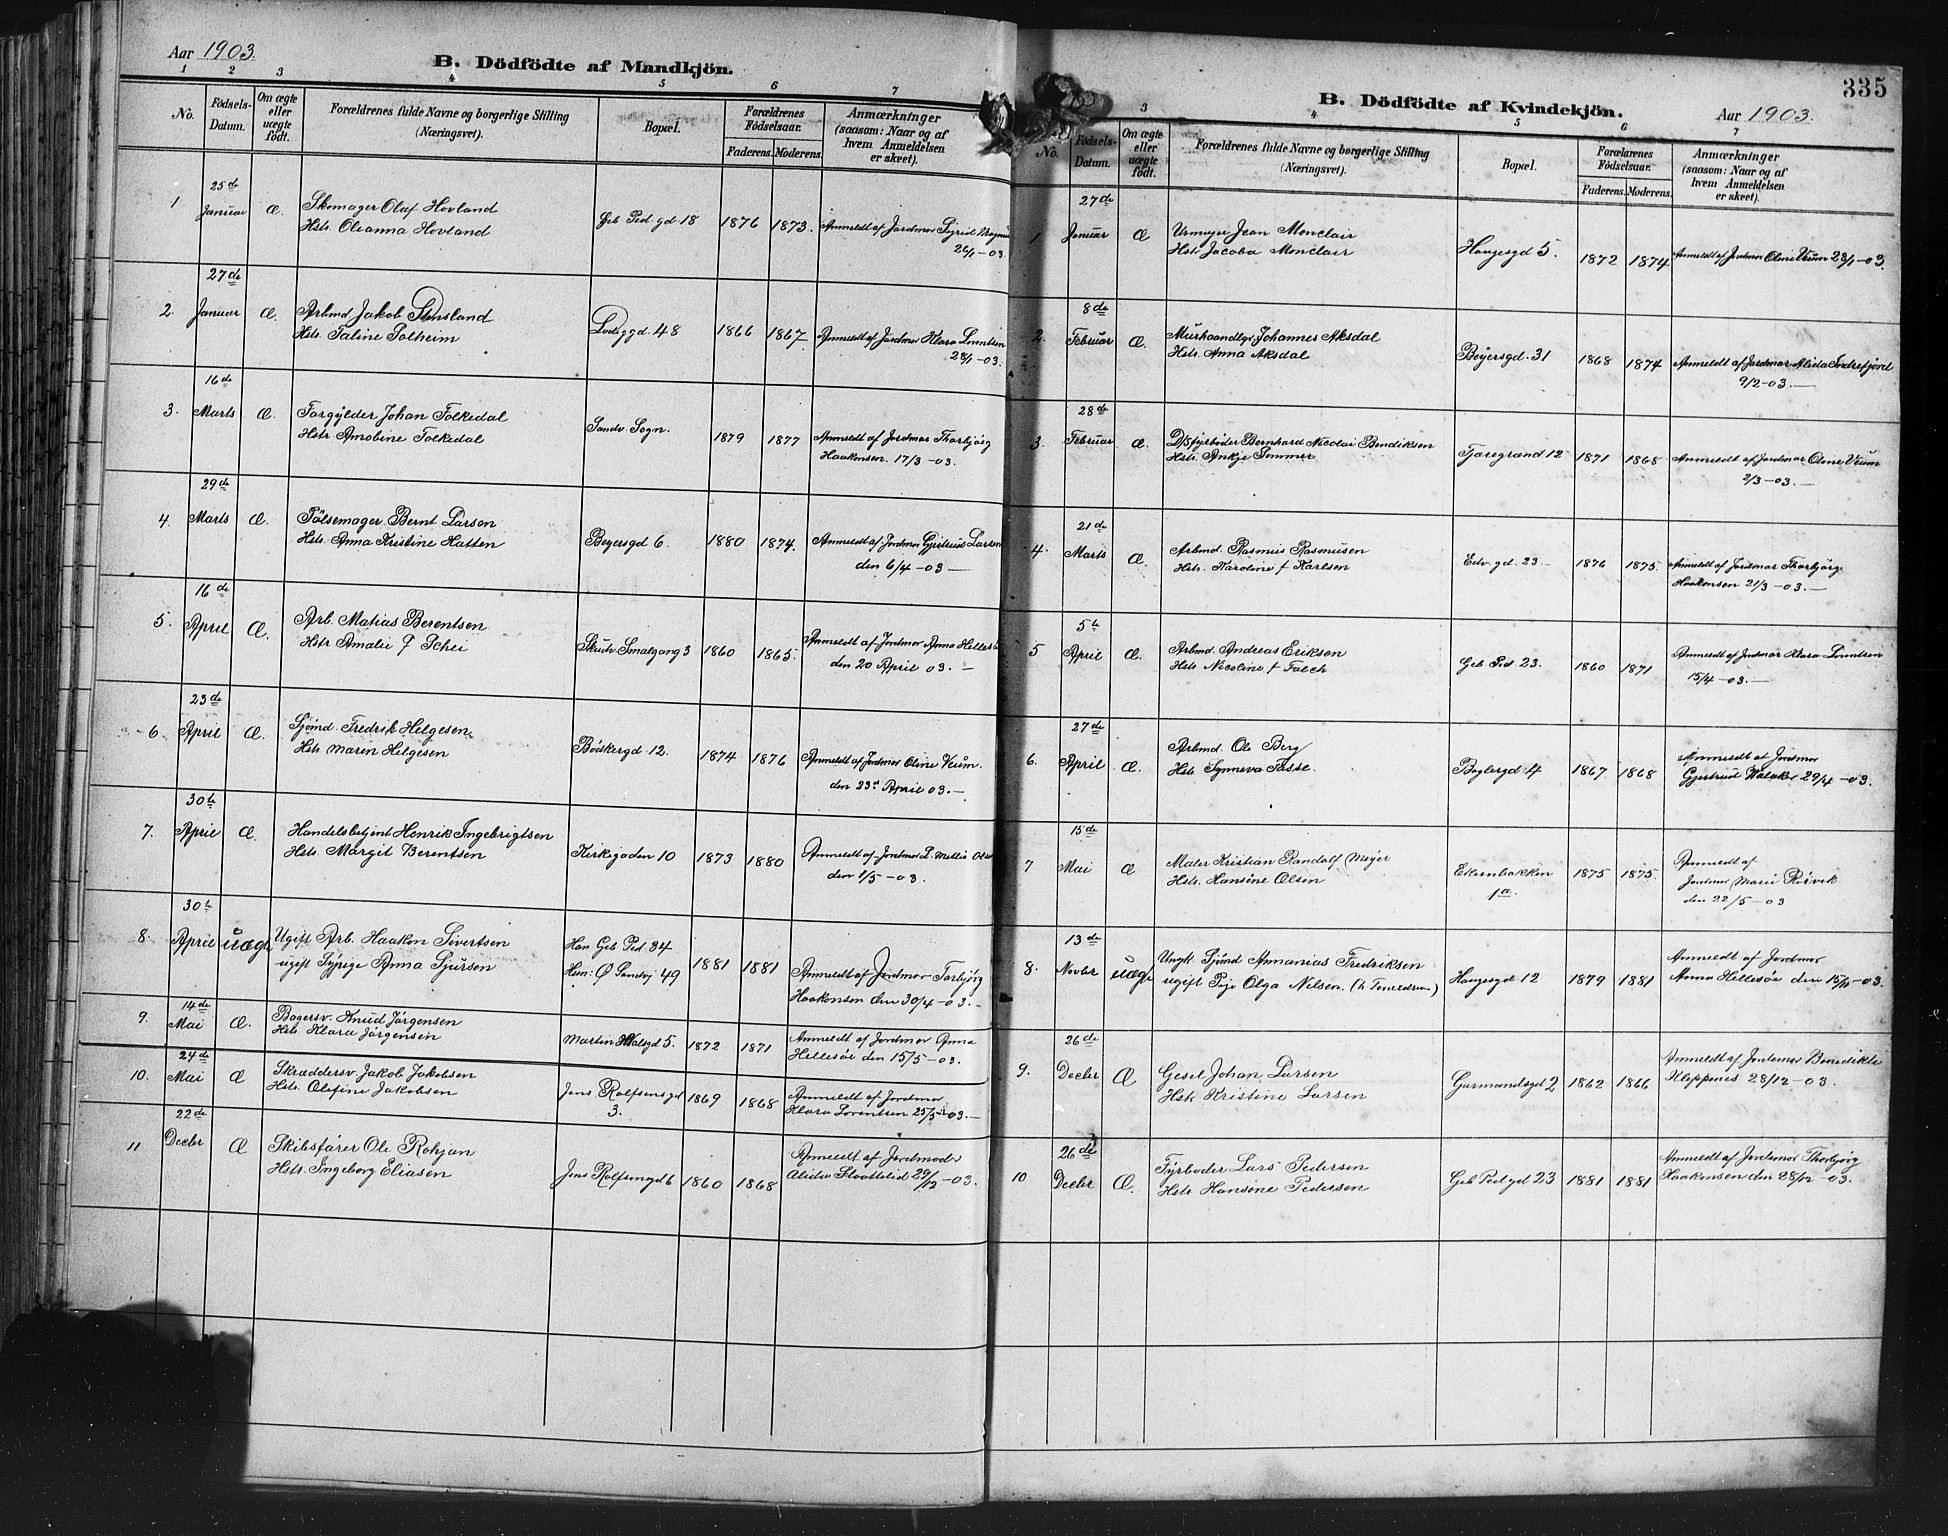 Aar 1903.
B. Dödfödte af Mandkjön.
1 2 3 4 5 6 7
No.
Födsels-Datum.
Om ægte eller uægte födt.
Forældrenes fulde Navne og borgerlige Stilling (Næringsvei).
Bopæl.
Forældrenes Födselsaar.
Faderens. Moderens.
Anmærkninger (saasom: Naar og af hvem Anmeldelsen er skeet).
25de
1 Januar æ. Skomager Olaf Hovland Geb Ped. gd 18 1876 1873. Anmeldt af Jordmor Sigrid
Hstr. Oleanna Hovland 26/1-03.
27de
2. Januar æ. Arbmd Jakob Stensland gd 48 1866 1867. Anmeldt af Jordmor Klara Lorentsen
Hstr. Taline Solheim 28/1-03.
16de
3. Marts æ. Forgylder Johan Folkedal Sandv. Sogn. 1879 1877 Anmeldt af Jordmor Thorbjörg
Hstr. Amobine Folkedal Haakonsen. 17/3-03.
29de
4. Marts Æ. Pölsemager Bernt Larsen Beyersgd 6. 1880 1874. Anmeldt af Jordmor Gjertrud Larsen
Hstr. Anna Kristine Hatten den 6/4-03 —
16de
5. April Æ. Arb. Matias Berentsen Skudv Smalgang 3 1860 1865. Anmeldt af Jordmor Anna Hellesö
Hstr Amalie f Schei den 20 April 03. —
23de
6. April Æ. Sjömd. Fredrik Helgesen Bödkergd 12. 1874 1876 Anmeldt af Jordmor Oline Veum.
Hstr Marin Helgesen den 23de April 03. —
30te
7. April Æ. Handelsbetjent Henrik Ingebrigtsen Kirkegaden 10 1873 1880 Anmeldt af Jordmor
Hstr. Margit Berentsen den 1/5-03.
30te
8. April uægte Ugift Arb. Haakon Sivertsen Han Geb Ped. 34 1881 1881 Anmeldt af Jordmor Torbjörg
ugift Sypige Anna Sjursen Hun: Ø Sandvj 49 Haakonsen den 30/4-03. —
14de
9. Mai Æ. Bagersv. Knud Jörgensen Martin Walsgd 5. 1872 1871 Anmeldt af Jordmor Anna
Hstr Klara Jörgensen Hellesöe den 15/5-03.
24de
10. Mai Æ Skræddersv Jakob Jakobsen Jens Rolfsensgd 3. 1869 1868 Anmeldt af Jordmor
Hstr. Olefine Jakobsen Klara Lorentsen 25/5-03. —
22de
11 Decbr Æ Skibsförer Ole Rohjan Jens Rolfsensgd 6 1860 1868 Anmeldt af Jordmoder
Hstr. Ingeborg Eliasen Alida 29/12-03.
335
B. Dödfödte af Kvindekjön.
Aar 1903.
3 4 5 6 7
No.
Födsels-Datum.
Om ægte eller uægte födt.
Forældrenes fulde Navne og borgerlige Stilling (Næringsvei).
Bopæl.
Forælarenes Födselsaar.
Faderens. Moderens.
Anmærkninger (saasom: Naar og af hvem Anmeldelsen er skeet).
27de
1 Januar Æ Urmager Jean Monclair Haugesgd 5. 1872 1874 Anmeldt af Jordmor Oline Veum 28/1-03.
Hstr Jacoba Monclair
8de
2. Februar Æ. Murhaandlgr Johannes Aksdal Beyersgd. 31 1868 1874 Anmeldt af Jordmor Alida Indrefjord
Hstr. Anna Aksdal 9/2-03. —
28de
3. Februar æ. D/Sfyrböder Bernhard Nicolai Bendiksen Tjæregrænd 12 1871 1868 Anmeldt af Jordmor Oline Veum
Hstr. Ankje Sommer 2/3-03. —
21de
4. Marts Æ. Arbmd. Rasmus Rasmusen Edv. gd. 23 1876 1875 Anmeldt af Jordmor Thorbjörg
Hstr. Karoline f Karlsen Haakonsen 21/3-03. —
5te
5 April Æ. Arbmd. Andreas Eriksen Geb Ped 23. 1860 1871 Anmeldt af Jordmor Klara Lorentsen
Hstr Nicoline f Falch 15/4-03. —
27de
6. April Æ. Arbmd. Ole Berg Boglesgd 4 1867 1868 Anmeldt af Jordmor
Hstr Synneva Sasse. Gjertrud Walaker 29/4-03.
15de
7 Mai Æ Maler Kristian Randolf Meyer Ekernbakken 1a. 1875 1875. Anmeldt af
Hstr. Hansine Olsen Jordmor Marie Risvik
den 22/5-03
13de
8. Novbr uægte Ungk Sjömd Ammanias Fredriksen Haugesgd 12 1879 1881 Anmeldt af Jordmor
ugift Pige Olga Nilsen. Anna Hellesöe den 15/11-03.
26de
9. Decbr Æ Gesel Johan Larsen Garmandsgd 2 1862 1866 Anmeldt af Jordemor Benedikte
Hstr Kristine Larsen Klippenes 28/12-03.
26de
10 Decbr Æ. Fyrböder Lars Pedersen Geb Ped gd 23 1881 1881 Anmeldt af Jordemor Thorbjörg
Hstr Hansine Pedersen Haakensen den 28/12-03.